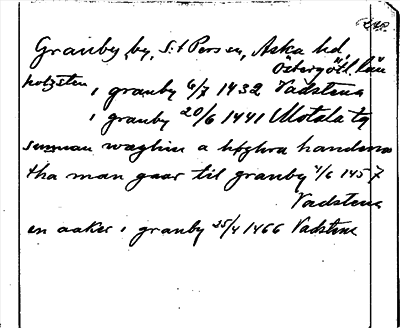 Granby, by, S:t Pers sn, Aska hd,
Östergötl. län
i granby 6/7 1432 Vadstena
i granby 20/6 1441 Motala tg
sunnan wæghin a høghra handena
tha man gaar til granby 4/6 1457
Vadstena
en aaker i granby 25/4 1466 Vadstena